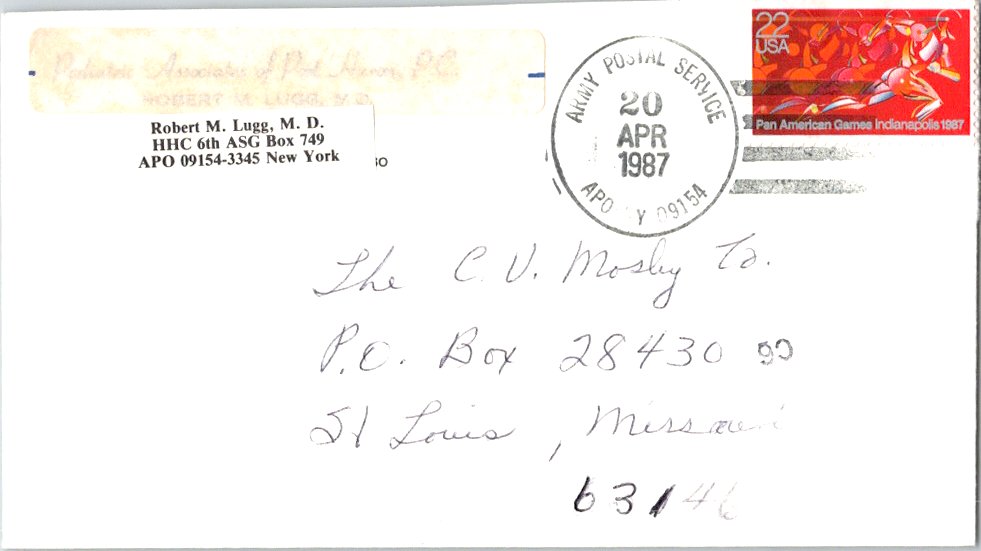 Pediatric Associates of Port Huron, P.C.
ROBERT M. LUGG, M.D.
Robert M. Lugg, M. D.
HHC 6th ASG Box 749
APO 09154-3345 New York
60
ARMY POSTAL SERVICE
20
APR
1987
APO NY 09154
22
USA
Pan American Games Indianapolis 1987
The C.V. Mosby Co.
P.O. Box 28430
St Louis, Missouri
63146